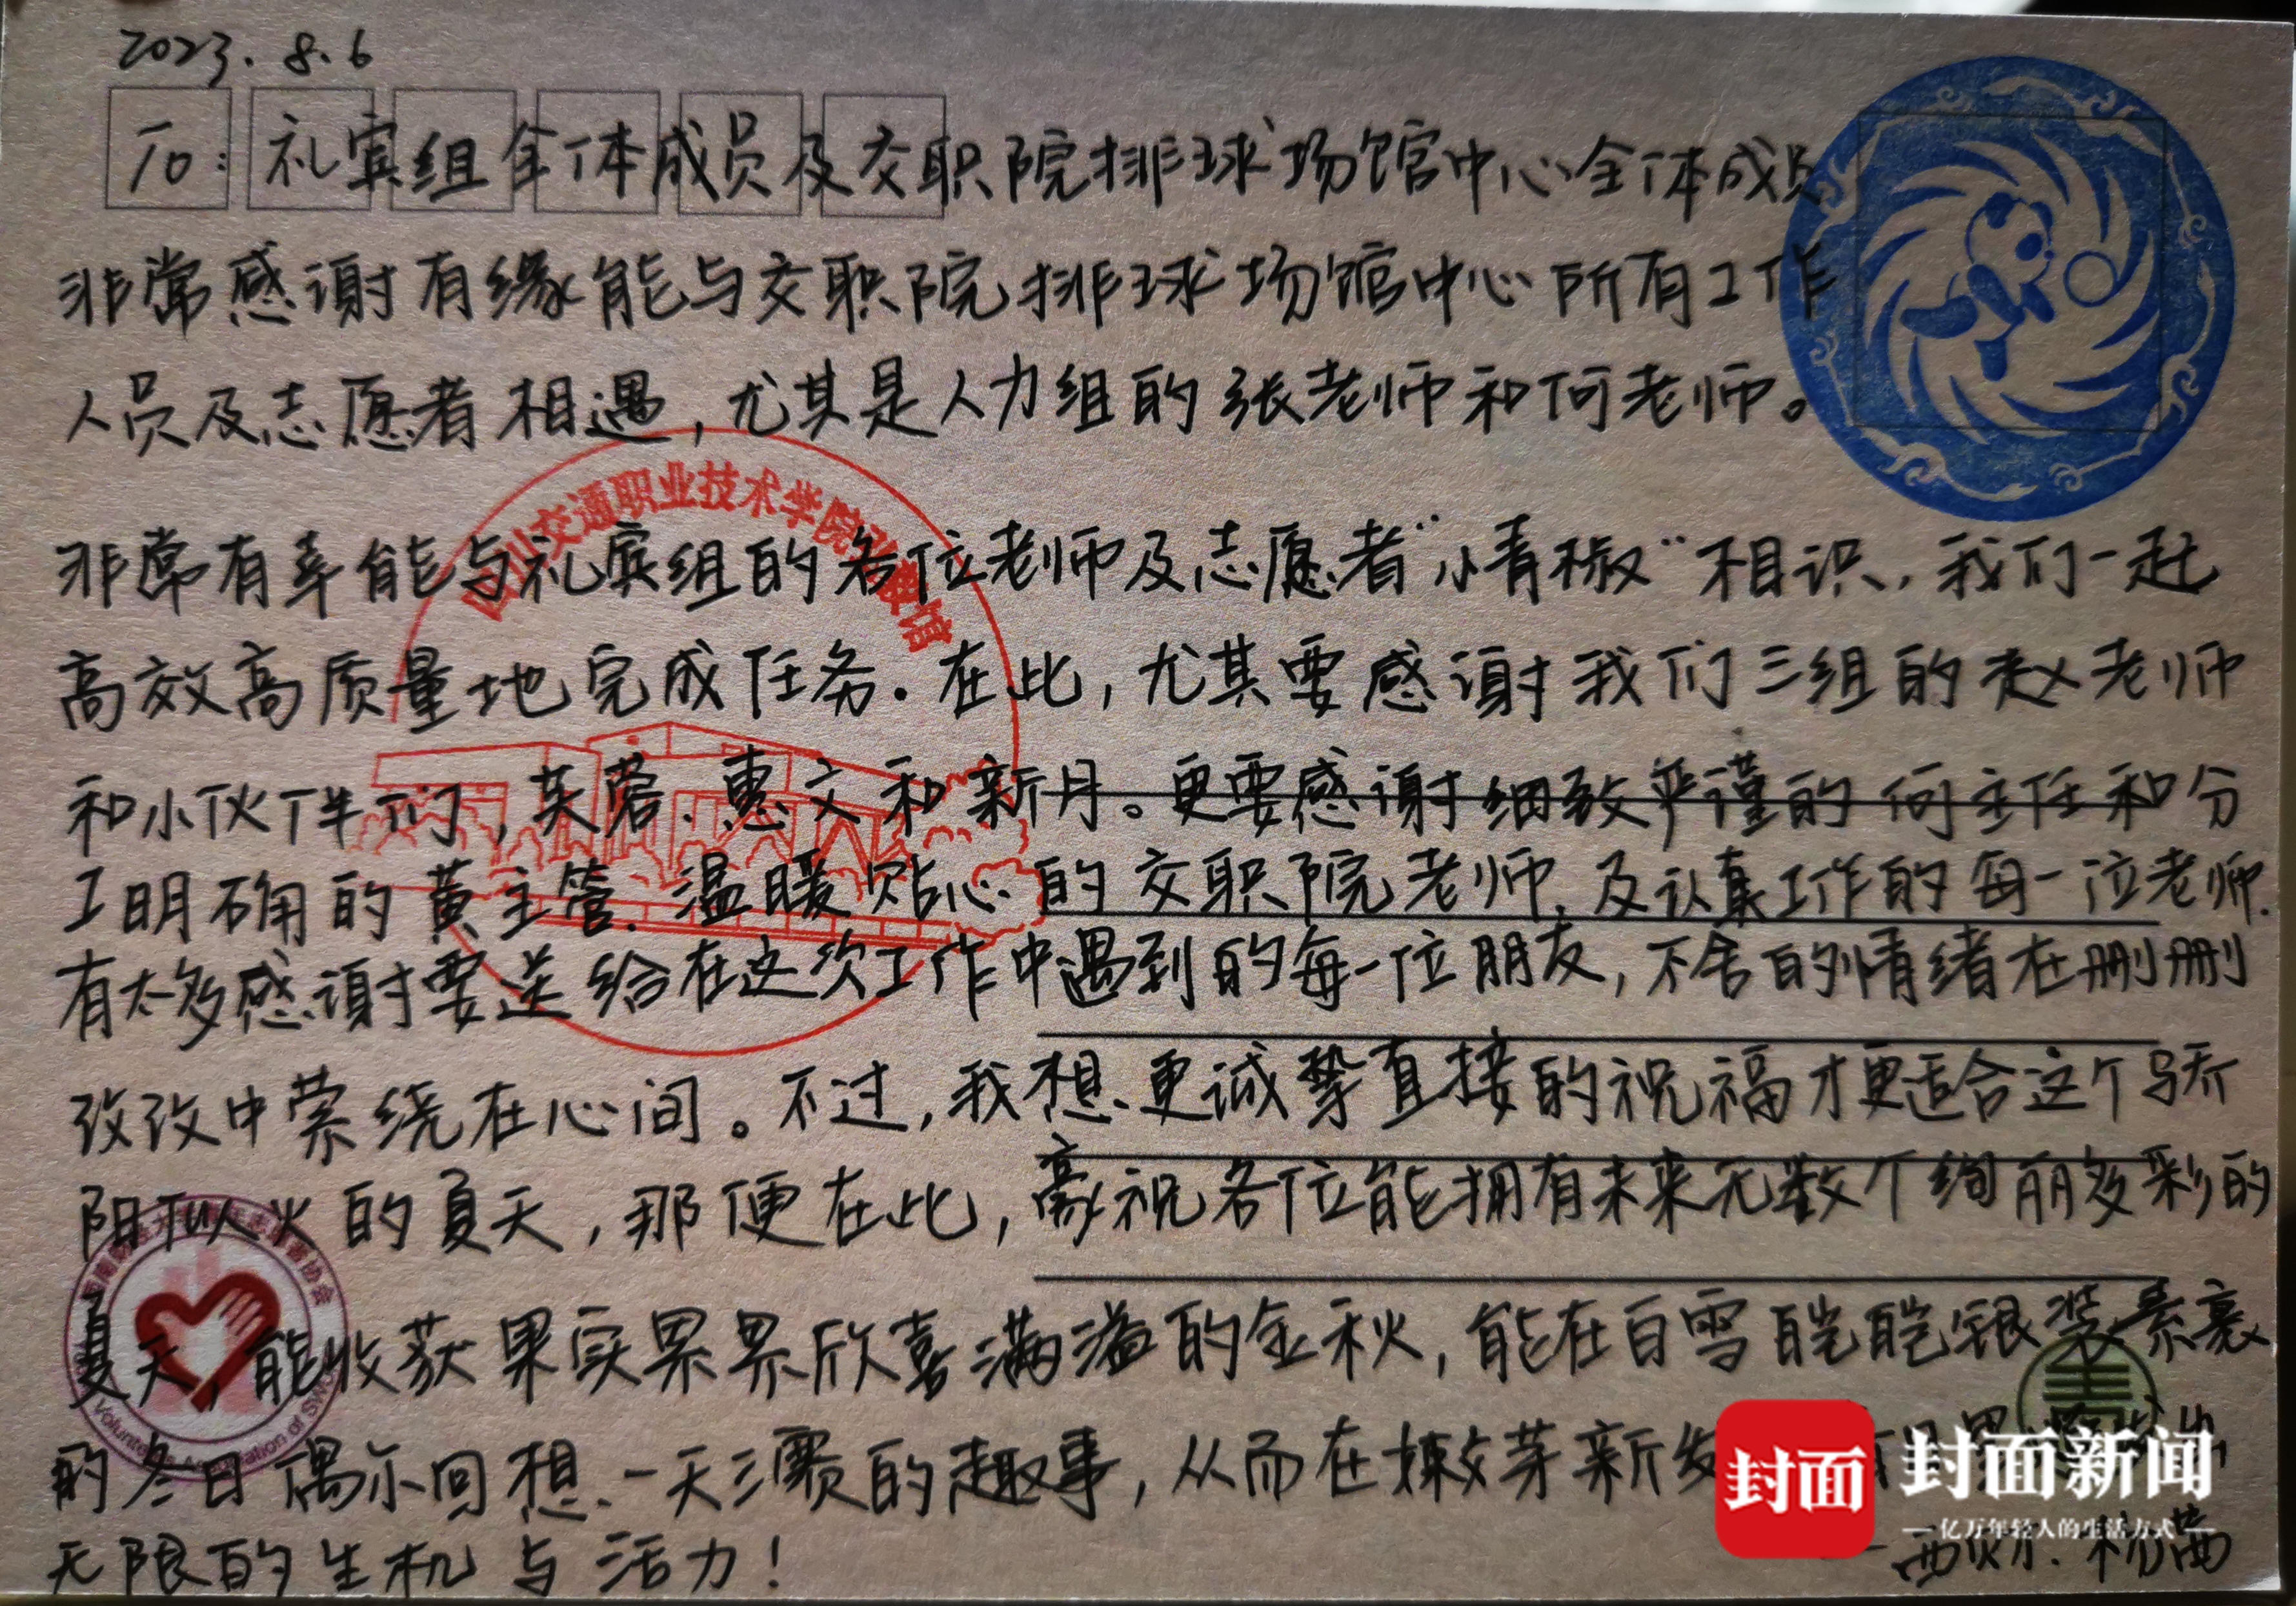 2023.8.6
To: 礼宾组全体成员及交职院排球场馆中心全体成员
非常感谢有缘能与交职院排球场馆中心所有工作
人员及志愿者相遇,尤其是人力组的张老师和何老师。
四川交通职业技术学院
馆
非常有幸能与礼宾组的各位老师及志愿者“小青椒”相识,我们一起
高效高质量地完成任务。在此,尤其要感谢我们三组的赵老师
和小伙伴们,芙蓉、惠文和新月。更要感谢细致严谨的何主任和分
工明确的黄主管、温暖贴心的交职院老师、及认真工作的每一位老师.
有太多感谢要送给在这次工作中遇到的每一位朋友,不舍的情绪在删删
改改中萦绕在心间。不过,我想、更诚挚直接的祝福才更适合这个骄
阳似火的夏天,那便在此,豪祝各位能拥有未来无数个绚丽多彩的
夏天,能收获果实累累欣喜满溢的金秋,能在白雪皑皑银装素裹
的冬日偶尔回想、一天三赛的趣事,从而在嫩芽新发
无限的生机与活力!
志愿者协会
Volunteers Association of
封面
封面新闻
亿万年轻人的生活方式